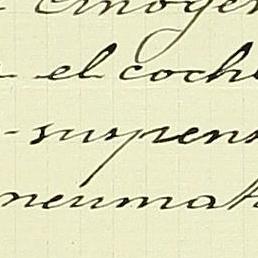 el coch
suspens
neumat